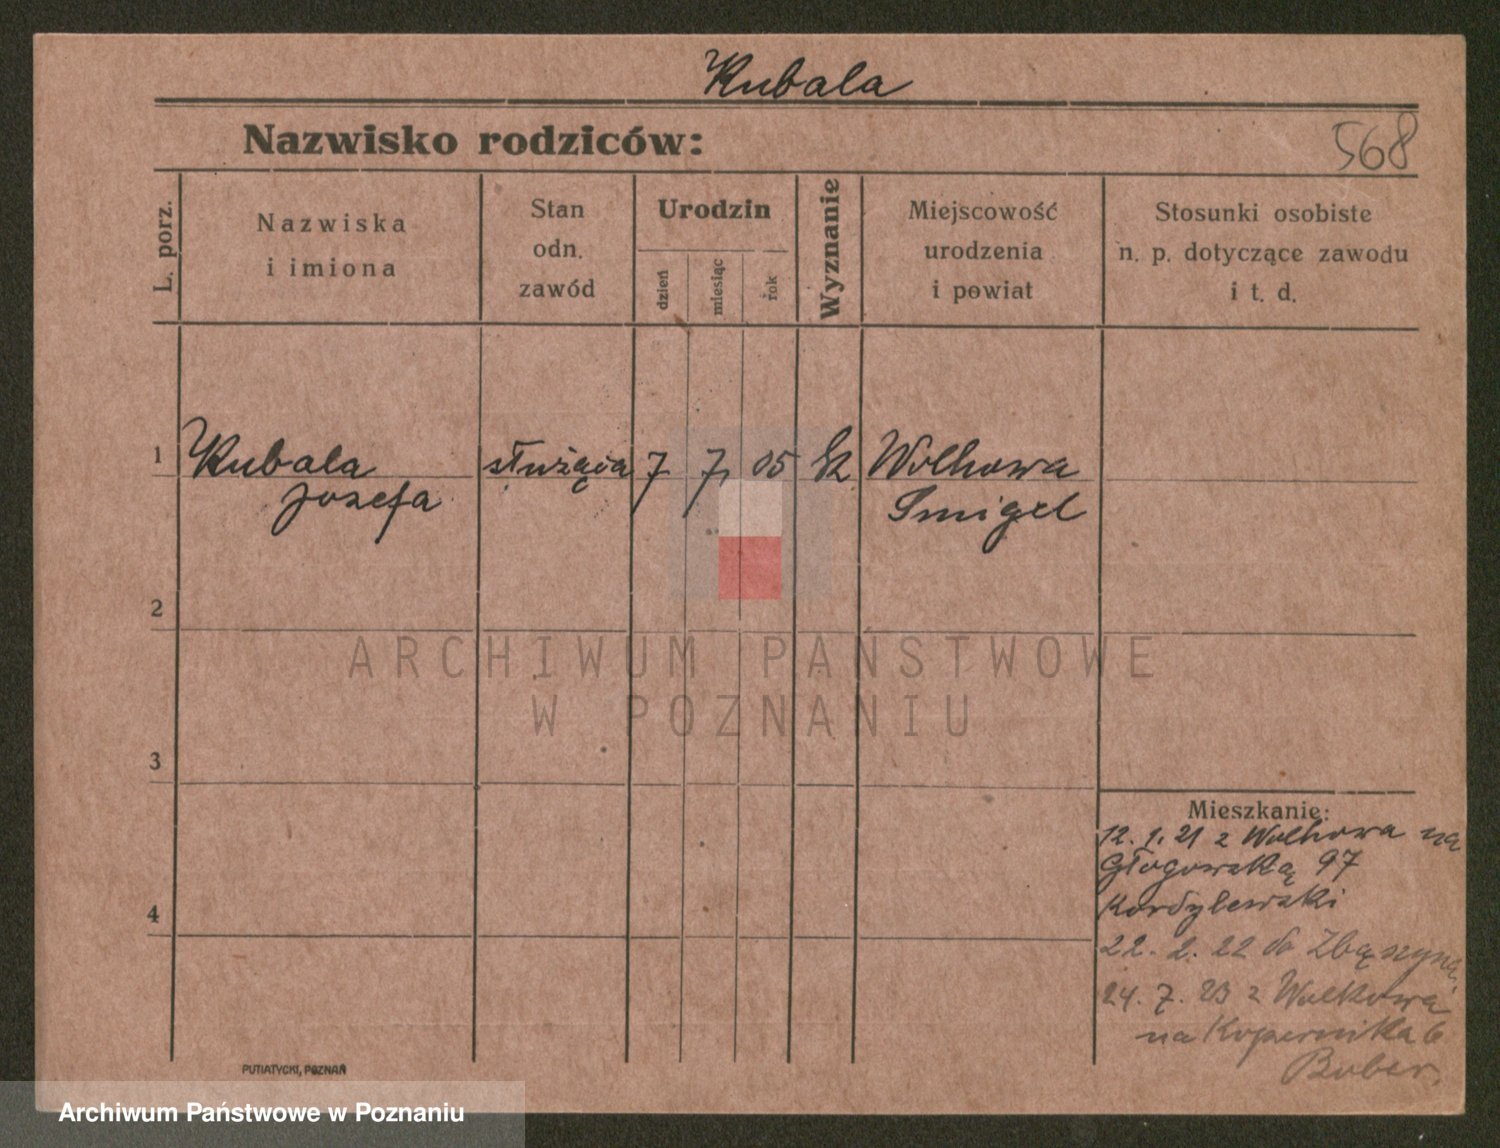 Kubala
Nazwisko rodziców:
568
L. porz.
Nazwiska
i imiona
Stan
odn.
zawód
Urodzin
dzień
miesiąc
rok
Wyznanie
Miejscowość
urodzenia
i powiat
Stosunki osobiste
n. p. dotyczące zawodu
i t. d.
1
Kubala służąca 7 7 05 Wolkowa
Jozefa Smigel
2
3
4
Mieszkanie:
12. 1. 21 z Wolkowa na
Głogowską 97
Kordylewski
22. 2. 22 do Zbąszynia
24. 7. 23 z Wolkowa
na Kopernika 6
Bober.
PUTIATYCKI, POZNAŃ
ARCHIWUM PAŃSTWOWE
W POZNANIU
Archiwum Państwowe w Poznaniu